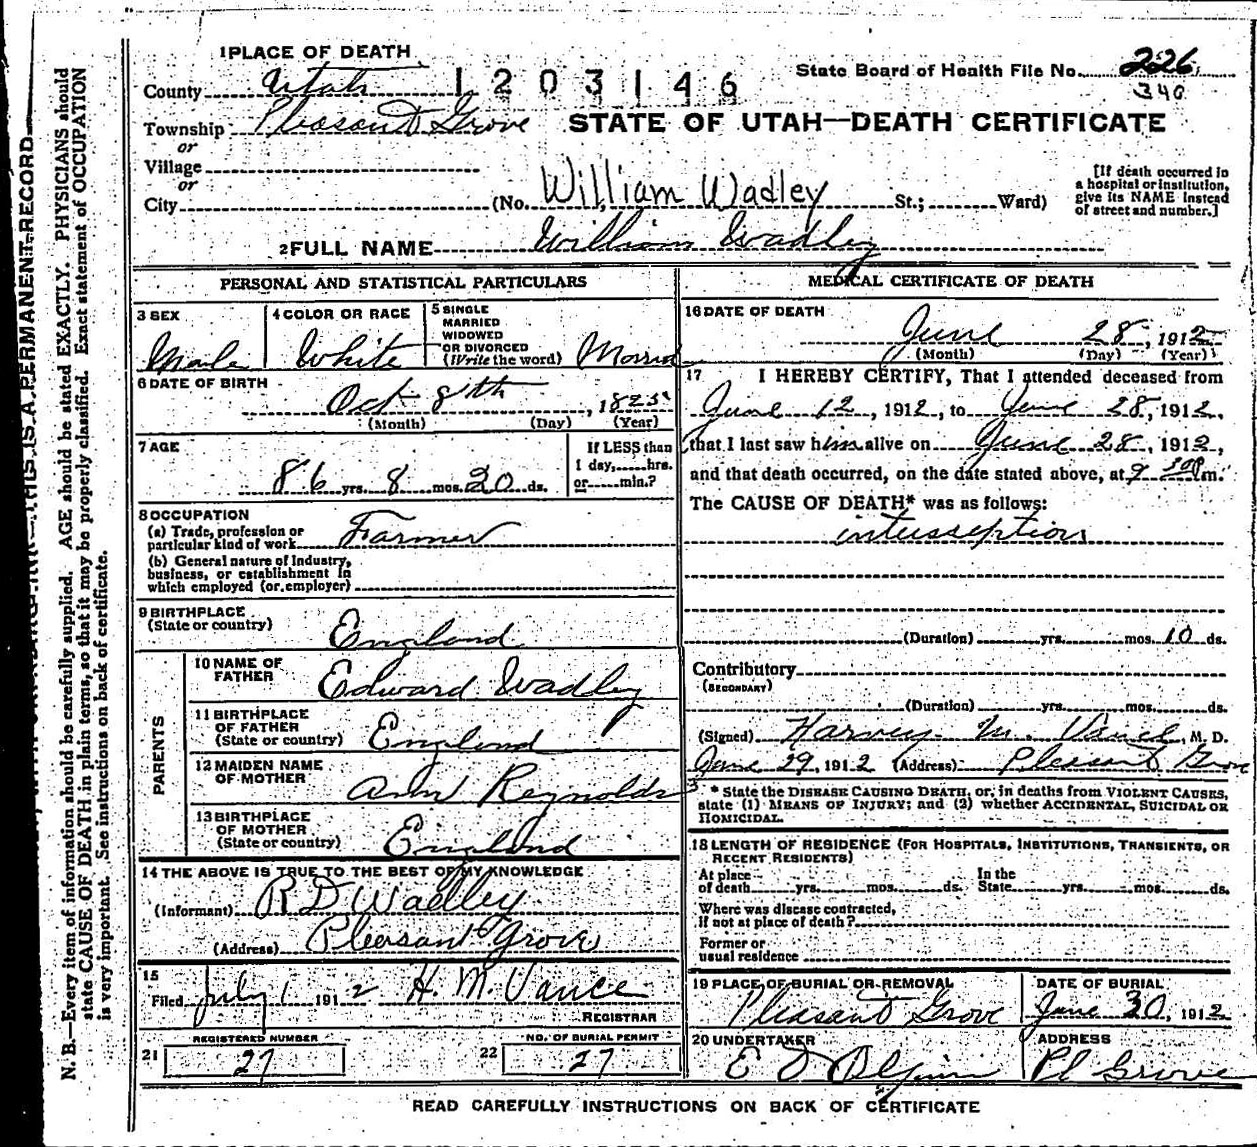 1 PLACE OF DEATH
County Utah
1203146
State Board of Health File No. 226
340
Township Pleasant Grove
STATE OF UTAH—DEATH CERTIFICATE
or
Village
or
City (No. William Wadley St.; Ward)
[If death occurred in a hospital or institution, give its NAME instead of street and number.]
2 FULL NAME William Wadley
PERSONAL AND STATISTICAL PARTICULARS
3 SEX Male
4 COLOR OR RACE White
5 SINGLE MARRIED WIDOWED OR DIVORCED (Write the word) Married
6 DATE OF BIRTH Oct 8th, 1825
(Month) (Day) (Year)
7 AGE 86 yrs. 8 mos. 20 ds.
If LESS than 1 day, hrs. or min.?
8 OCCUPATION
(a) Trade, profession or particular kind of work Farmer
(b) General nature of Industry, business, or establishment in which employed (or employer)
9 BIRTHPLACE (State or country) England
PARENTS
10 NAME OF FATHER Edward Wadley
11 BIRTHPLACE OF FATHER (State or country) England
12 MAIDEN NAME OF MOTHER Ann Reynolds
13 BIRTHPLACE OF MOTHER (State or country) England
14 THE ABOVE IS TRUE TO THE BEST OF MY KNOWLEDGE
(Informant) R D Wadley
(Address) Pleasant Grove
15 Filed July 1 1912 H. M. Vance
REGISTRAR
21 REGISTERED NUMBER 27
22 NO. OF BURIAL PERMIT 27
MEDICAL CERTIFICATE OF DEATH
16 DATE OF DEATH
June 28, 1912
(Month) (Day) (Year)
17 I HEREBY CERTIFY, That I attended deceased from
June 12, 1912, to June 28, 1912,
that I last saw him alive on June 28, 1912,
and that death occurred, on the date stated above, at 9 30 P m.
The CAUSE OF DEATH* was as follows:
intusseption
(Duration) yrs. mos. 10 ds.
Contributory
(SECONDARY)
(Duration) yrs. mos. ds.
(Signed) Harvey M. Vance, M. D.
June 29, 1912 (Address) Pleasant Grove
* State the DISEASE CAUSING DEATH, or, in deaths from VIOLENT CAUSES,
state (1) MEANS OF INJURY; and (2) whether ACCIDENTAL, SUICIDAL OR
HOMICIDAL.
18 LENGTH OF RESIDENCE (FOR HOSPITALS, INSTITUTIONS, TRANSIENTS, OR
RECENT RESIDENTS)
At place of death yrs. mos. ds. In the State yrs. mos. ds.
Where was disease contracted,
if not at place of death?
Former or
usual residence
19 PLACE OF BURIAL OR REMOVAL Pleasant Grove
DATE OF BURIAL June 30, 1912
20 UNDERTAKER E D
ADDRESS Pl Grove
READ CAREFULLY INSTRUCTIONS ON BACK OF CERTIFICATE
THIS IS A PERMANENT RECORD
N. B.—Every item of information should be carefully supplied. AGE should be stated EXACTLY. PHYSICIANS should
state CAUSE OF DEATH in plain terms, so that it may be properly classified. Exact statement of OCCUPATION
is very important. See instructions on back of certificate.